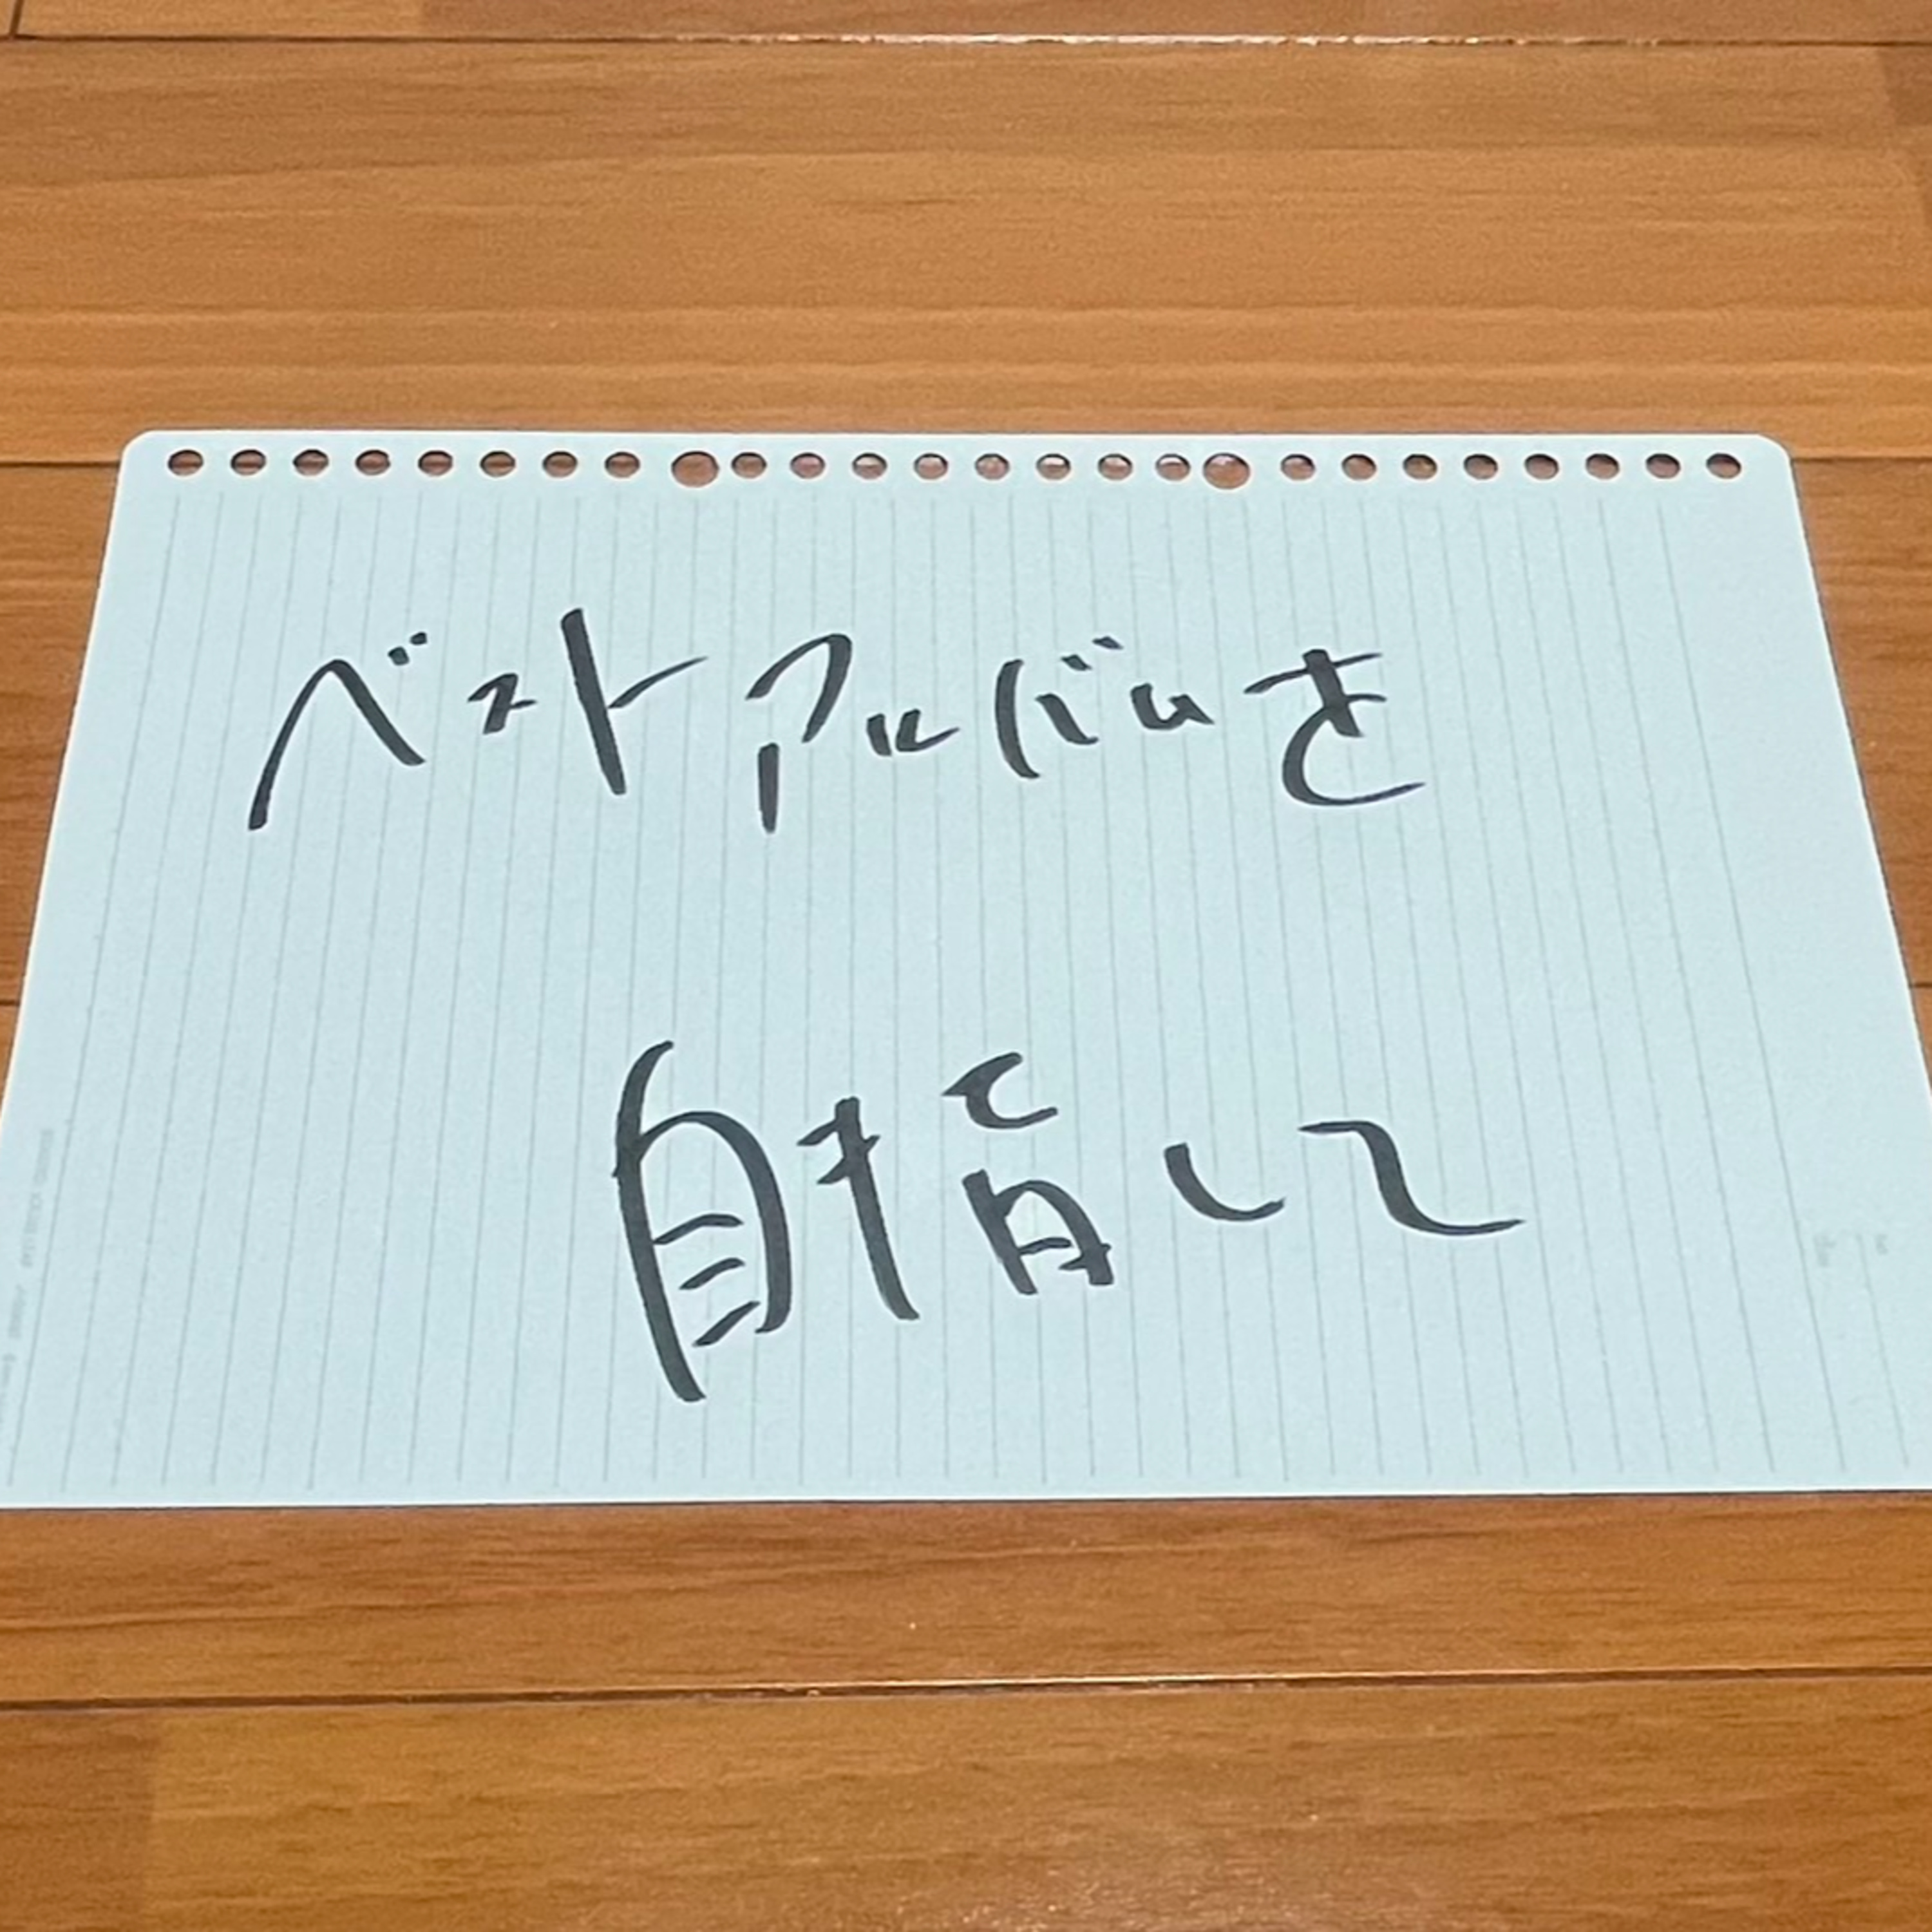 ベストアルバムを
目指して